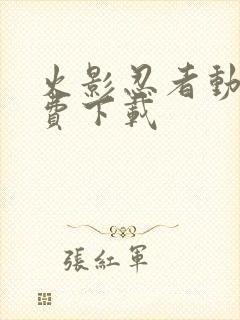 火影忍者動
費下載
張紅軍